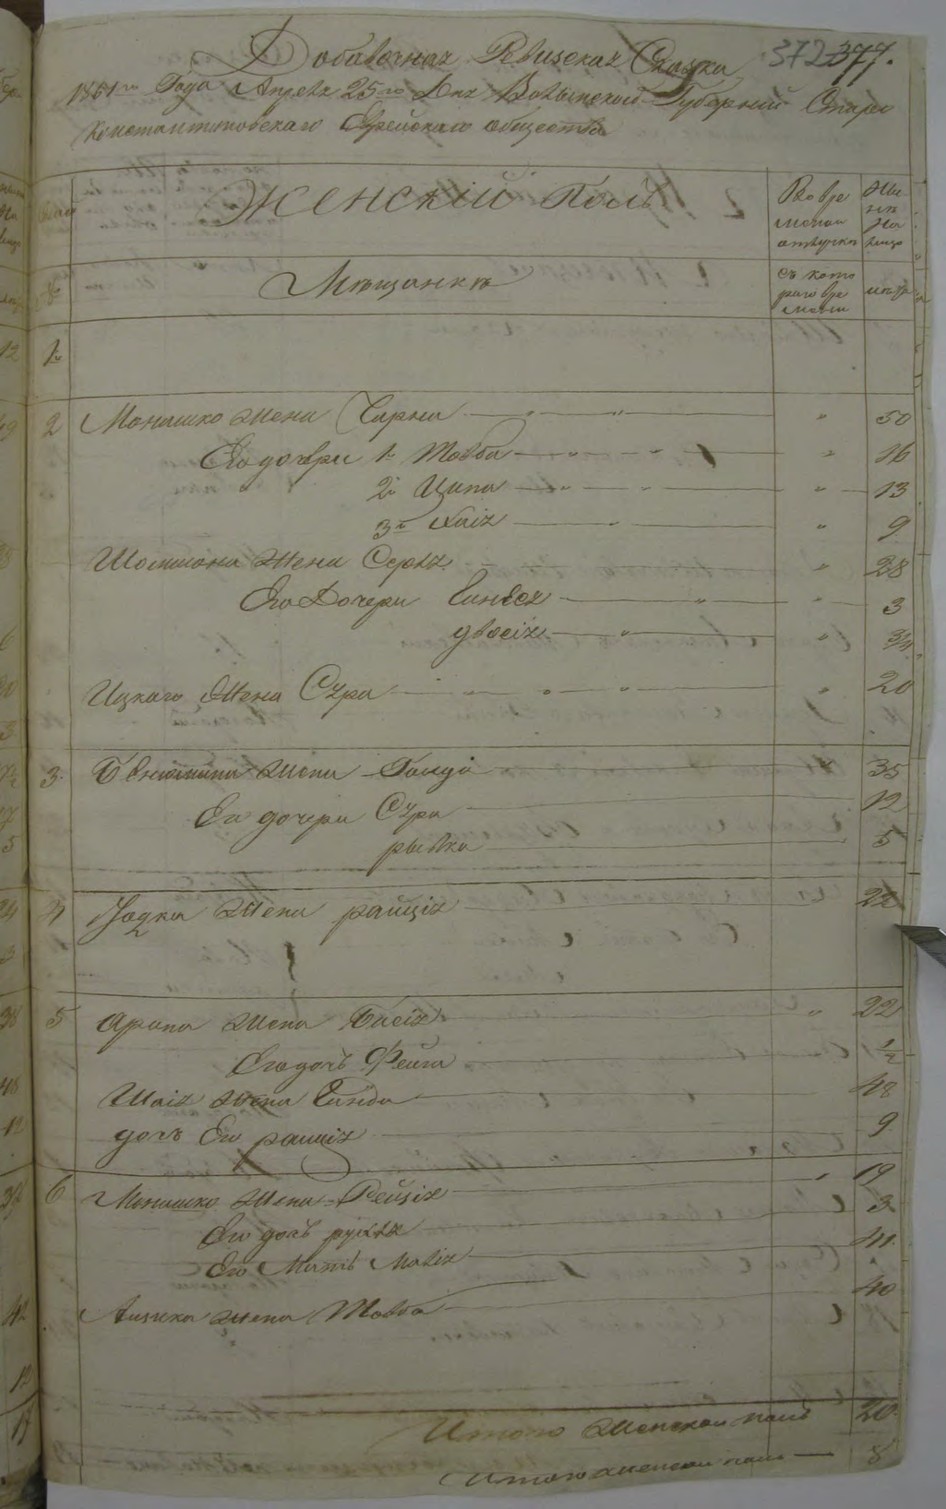 Добавочная Ревизская Сказка 372 377.
1851го Года Апреля 25го Дня Волынской Губернии Старо
константиновскаго Еврейскаго общества
Женскій Полъ
Во вре
менной
отлучкѣ
Ны
нѣ
На
лицо
Мѣщанкѣ
съ кото
раго вре
мени
лѣта
1й
2 Монашко жена Чарна 50
Его дочери 1я Товба 16
2я Ципа 13
3я Хаія 9
Шолиона Жена Серля 28
Его Дочери Синдея 3
двосія 3/4
Ицкаго Жена Сура 20
3. Бенюмина жена Гольда 35
Его дочери Сура 12
рывка 5
4 жена райція 22
5 Арона жена Басія 22
Его дочь Фейга 1/2
Шаія жена Синда 48
дочь Его раиція 9
6 Монашко жена Рейзія 19
Его дочь рухля 3
Его Мать Маліа 41
Аицика жена Товба 40
Итого женскаго полъ 20
Итого женскаго полъ 8